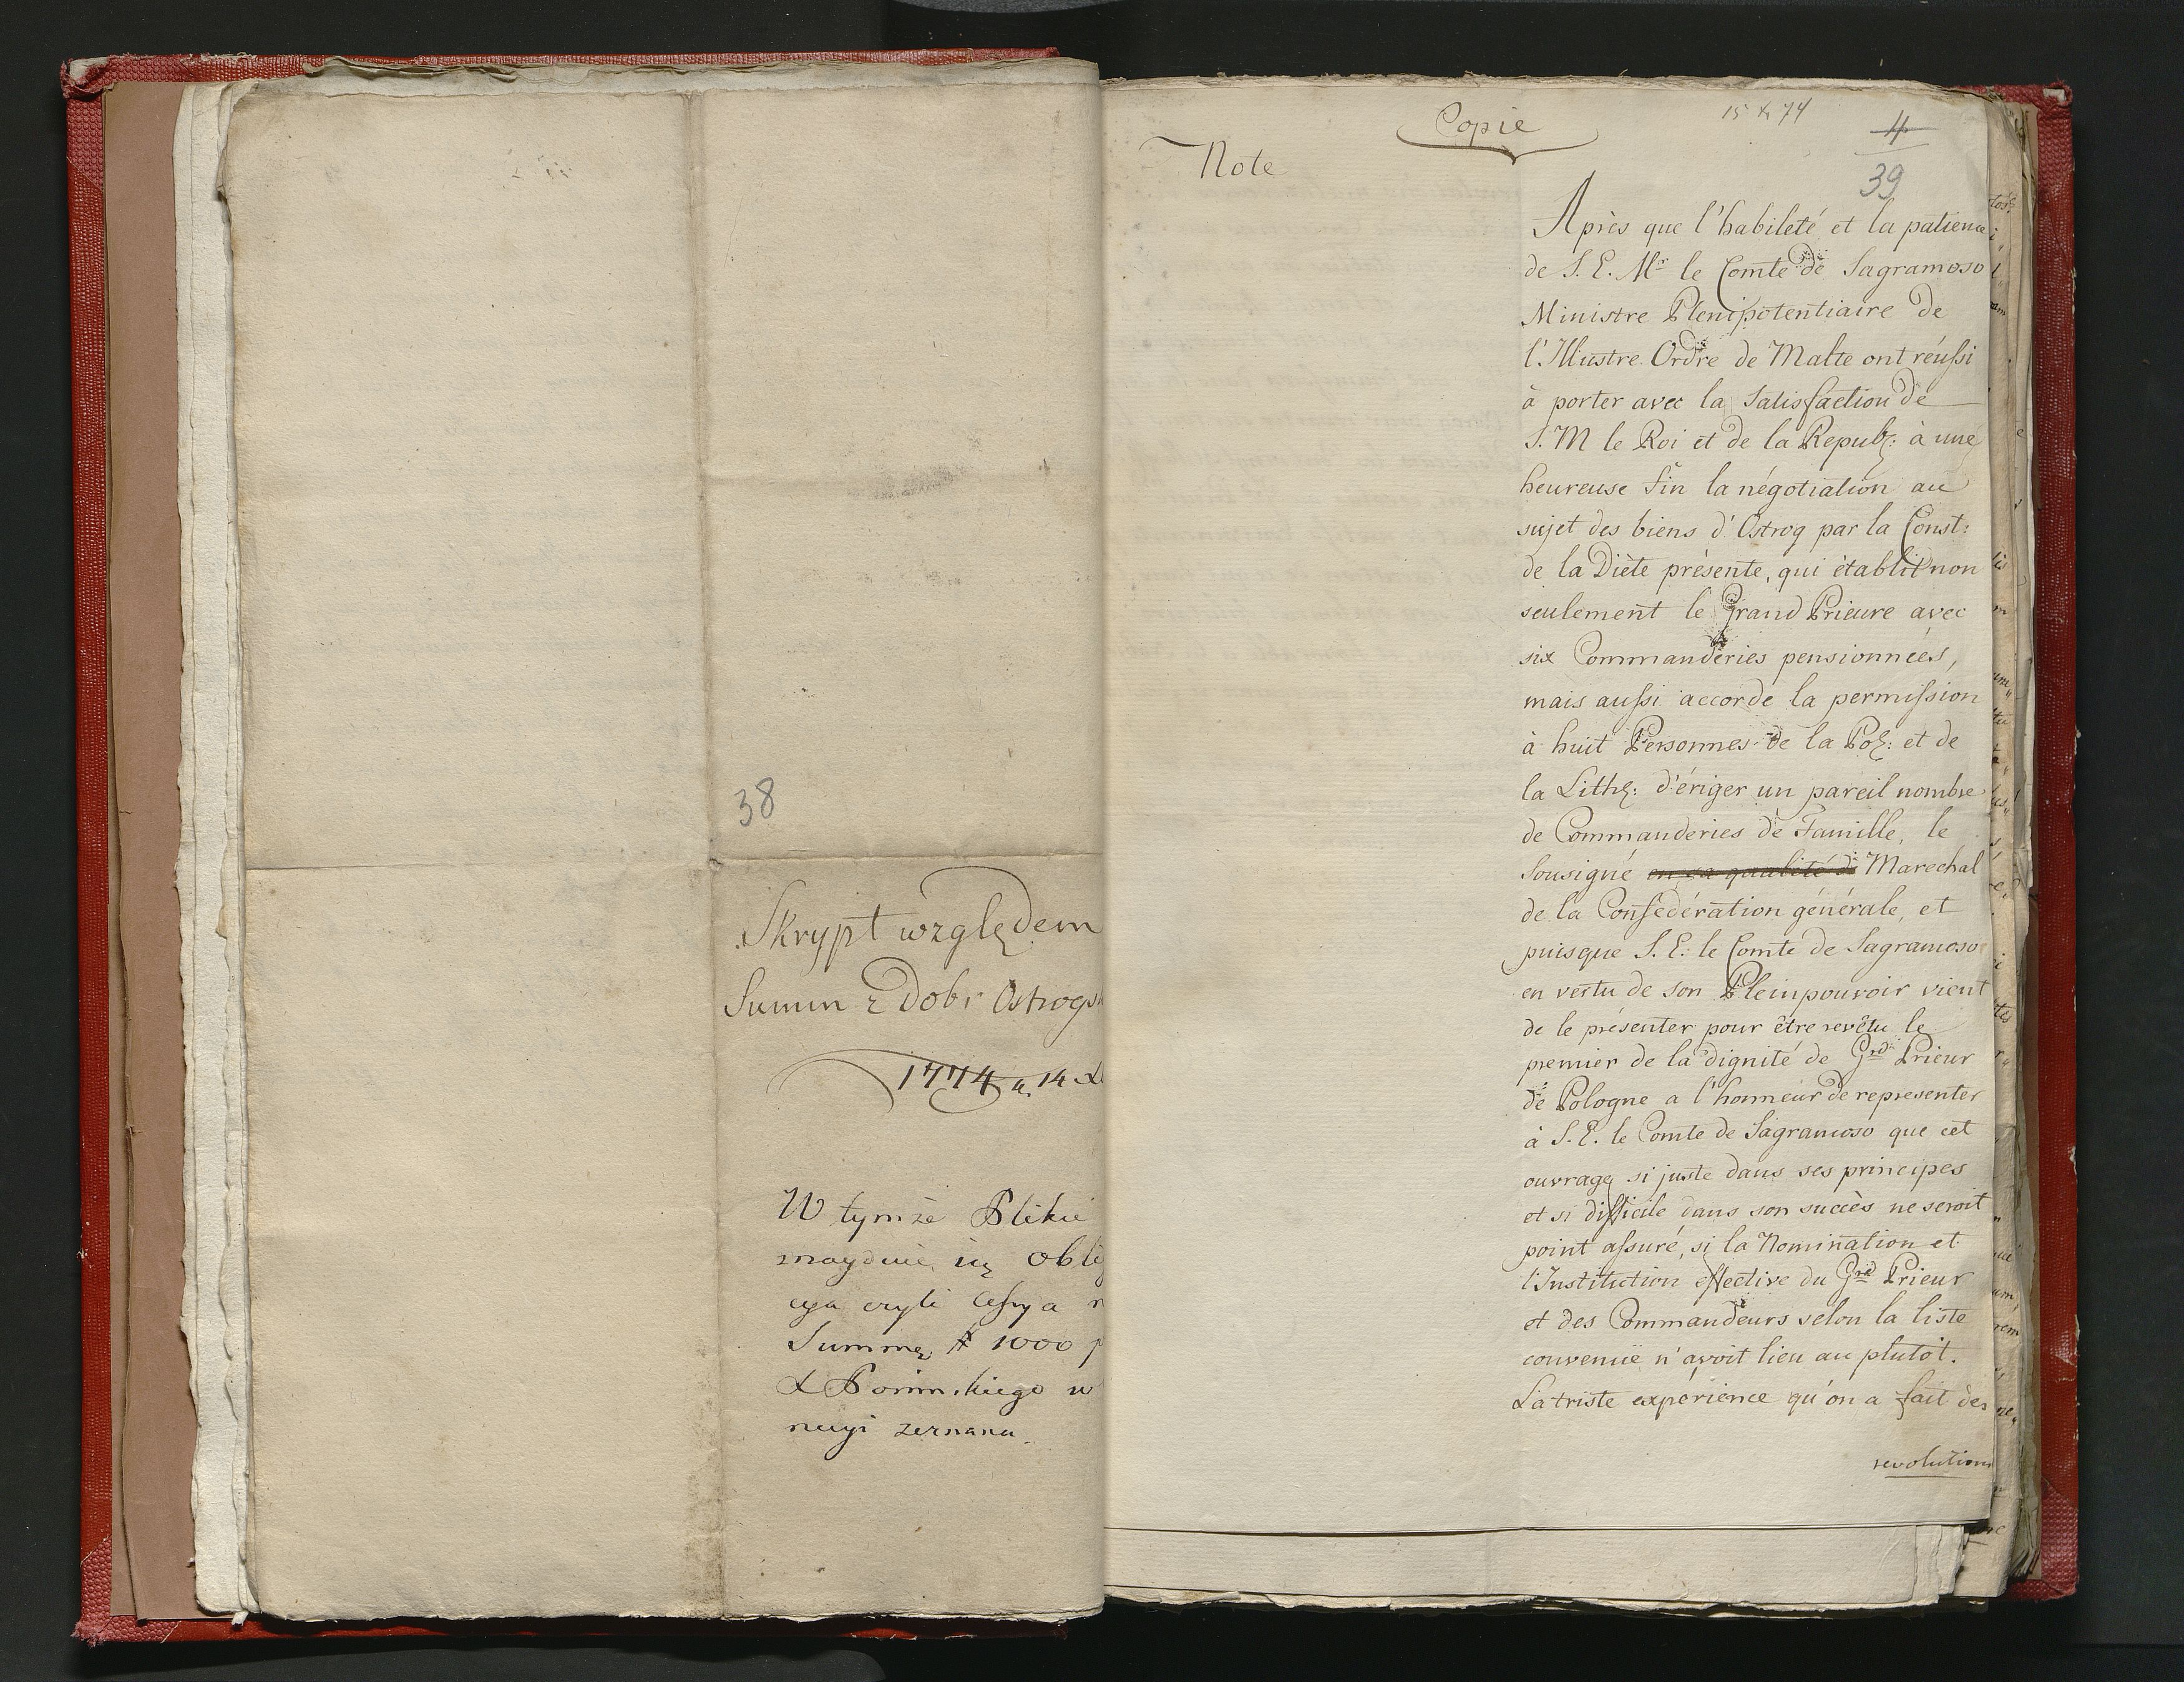 38
Skrypt względem
Summ z Dobr Ostrogs
1774 a. 14 X
W tymże Pliku
znayduie się oblig
cya czyli Cessya
Summę # 1000 p
X Ponińskiego w
zeznana
Copie
15 X 74
4
39
Note
Après que l'habileté et la patience
de S. E. Mr le Comte de Sagramoso
Ministre Plenipotentiaire de
l'Illustre Ordre de Malte ont réussi
à porter avec la Satisfaction de
S. M le Roi et de la Republ: à une
heureuse fin la négotiation au
sujet des biens d'Ostrog par la Const:
de la Diète présente, qui établit non
seulement le Grand Prieure avec
six Commanderies pensionnées,
mais aussi accorde la permission
à huit Personnes de la Pol: et de
la Lith: d'ériger un pareil nombre
de Commanderies de Famille, le
Sousigné en sa qualité de Marechal
de la Confédération générale, et
puisque S. E: le Comte de Sagramoso
en vertu de son Pleinpouvoir vient
de le présenter pour être revêtu le
premier de la dignité de Grd Prieur
de Pologne a l'honneur de representer
à S. E. le Comte de Sagramoso que cet
ouvrage si juste dans ses principes
et si difficile dans son succès ne seroit
point assuré, si la Nomination et
l'Institution effective du Grd Prieur
et des Commandeurs selon la liste
convenüe n'avoit lieu au plutôt.
La triste expérience qu'on a fait des
revolutions